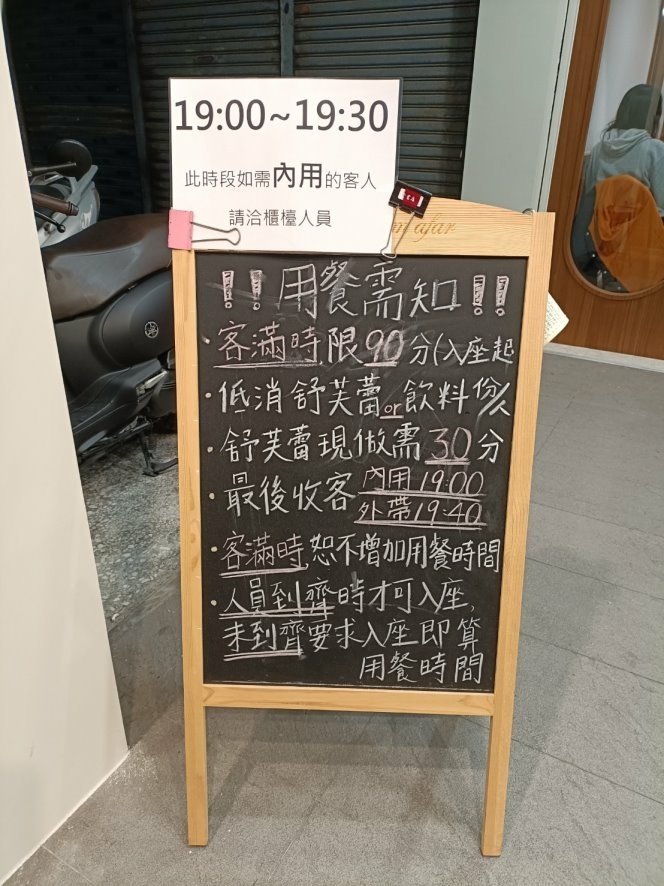 19:00~19:30
此時段如需內用的客人
請洽櫃檯人員
afar
!! 用餐需知 !!
客滿時,限90分(入座起
低消舒芙蕾or飲料份/人
舒芙蕾現做需30分
最後收客 內用 19:00
外帶 19:40
客滿時,恕不增加用餐時間
人員到齊時才可入座,
未到齊要求入座即算
用餐時間